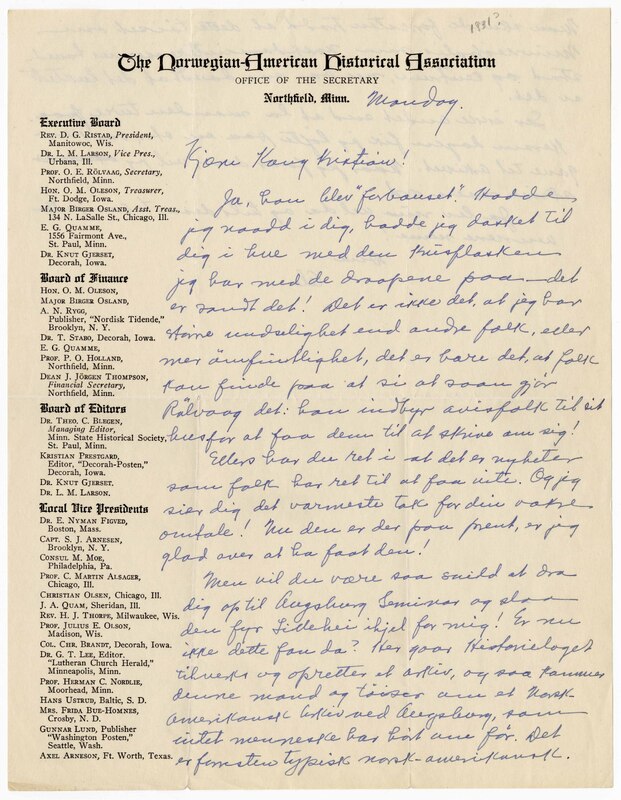 1931?
The Norwegian-American Historical Association
OFFICE OF THE SECRETARY
Northfield, Minn.
Monday.
Executive Board
REV. D. G. RISTAD, President,
Manitowoc, Wis.
DR. L. M. LARSON, Vice Pres.,
Urbana, Ill.
PROF. O. E. RÖLVAAG, Secretary,
Northfield, Minn.
HON. O. M. OLESON, Treasurer,
Ft. Dodge, Iowa.
MAJOR BIRGER OSLAND, Asst. Treas.,
134 N. LaSalle St., Chicago, Ill.
E. G. QUAMME,
1556 Fairmont Ave.,
St. Paul, Minn.
DR. KNUT GJERSET,
Decorah, Iowa.
Board of Finance
HON. O. M. OLESON,
MAJOR BIRGER OSLAND,
A. N. RYGG,
Publisher, "Nordisk Tidende,"
Brooklyn, N. Y.
DR. T. STABO, Decorah, Iowa.
E. G. QUAMME,
PROF. P. O. HOLLAND,
Northfield, Minn.
DEAN J. JÖRGEN THOMPSON,
Financial Secretary,
Northfield, Minn.
Board of Editors
DR. THEO. C. BLEGEN,
Managing Editor,
Minn. State Historical Society,
St. Paul, Minn.
KRISTIAN PRESTGARD,
Editor, "Decorah-Posten,"
Decorah, Iowa.
DR. KNUT GJERSET.
DR. L. M. LARSON.
Local Vice Presidents
DR. E. NYMAN FIGVED,
Boston, Mass.
CAPT. S. J. ARNESEN,
Brooklyn, N. Y.
CONSUL M. MOE,
Philadelphia, Pa.
PROF. C. MARTIN ALSAGER,
Chicago, Ill.
CHRISTIAN OLSEN, Chicago, Ill.
J. A. QUAM, Sheridan, Ill.
REV. H. J. THORPE, Milwaukee, Wis.
PROF. JULIUS E. OLSON,
Madison, Wis.
COL. CHR. BRANDT, Decorah, Iowa.
DR. G. T. LEE, Editor,
"Lutheran Church Herald,"
Minneapolis, Minn.
PROF. HERMAN C. NORDLIE,
Moorhead, Minn.
HANS USTRUD, Baltic, S. D.
MRS. FRIDA BUE-HOMNES,
Crosby, N. D.
GUNNAR LUND, Publisher
"Washington Posten,"
Seattle, Wash.
AXEL ARNESON, Ft. Worth, Texas.
Kjære Kong Kristian!
Ja, han blev "forbauset". Hadde
jeg naadd i dig, hadde jeg dasket til
dig i hue med den flasken
jeg har med de draapene paa—det
er sandt det! Det er ikke det, at jeg har
större undselighet end andre folk, eller
mer ömfintlighet, det er bare det, at folk
kan finde paa at si at saan gjör
Rölvaag det: han indbyr avisfolk til sit
hus for at faa dem til at skrive om sig!
Ellers har du ret i at det er nyheter
som folk har ret til at faa vite. Og jeg
sier dig det varmeste tak for din vakre
omtale! Nu den er der paa prent, er jeg
glad over at ha faat den!
Men vil du være saa snild at dra
dig op til Augsburg Seminar og slaa
den fyr Lillehei ihjel for mig! Er nu
ikke dette fan da? Her gaar Historielaget
tilverks og opretter et arkiv, og saa kommer
denne mand og töiser om et Norsk-
Amerikansk Arkiv ved Augsburg, som
intet menneske har hört om för. Det
er forresten typisk norsk-amerikansk.